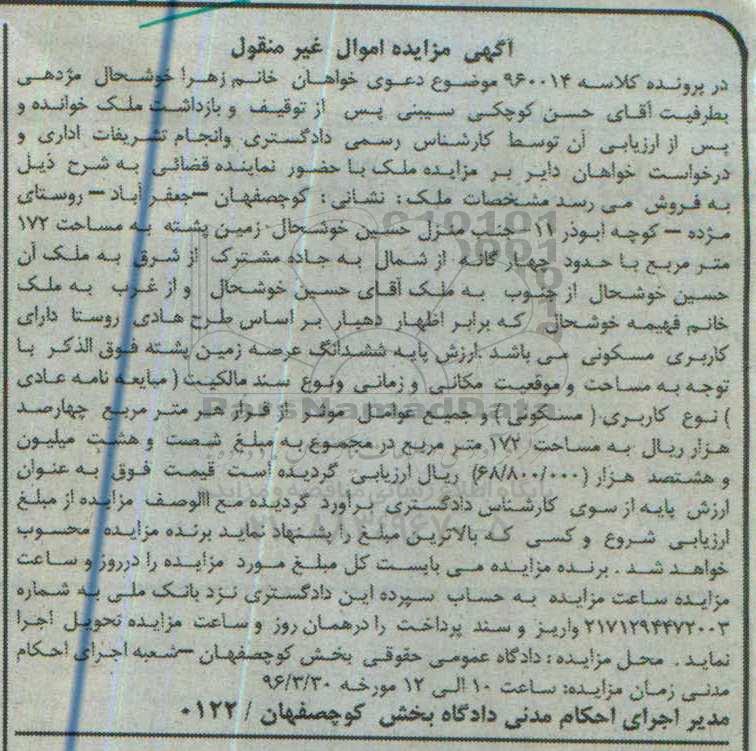 آگهی مزایده اموال غیر منقول
در پرونده کلاسه ۹۶۰۰۱۴ موضوع دعوی خواهان خانم زهرا خوشحال مژدهی
بطرفیت آقای حسن کوچکی سیبنی پس از توقیف و بازداشت ملک خوانده و
پس از ارزیابی آن توسط کارشناس رسمی دادگستری وانجام تشریفات اداری و
درخواست خواهان دایر بر مزایده ملک با حضور نماینده قضائی به شرح ذیل
به فروش می رسد مشخصات ملک : نشانی : کوچصفهان –جعفر آباد – روستای
مژده – کوچه ابوذر ۱۱ –جنب منزل حسین خوشحال- زمین پشته به مساحت ۱۷۲
متر مربع با حدود چهار گانه از شمال به جاده مشترک از شرق به ملک آن
حسین خوشحال از جنوب به ملک آقای حسین خوشحال و از غرب به ملک
خانم فهیمه خوشحال که برابر اظهار دهیار بر اساس طرح هادی روستا دارای
کاربری مسکونی می باشد .ارزش پایه ششدانگ عرصه زمین پشته فوق الذکر با
توجه به مساحت و موقعیت مکانی و زمانی ونوع سند مالکیت ( مبایعه نامه عادی
) نوع کاربری ( مسکونی ) و جمیع عوامل موثر از قرار هر متر مربع چهارصد
هزار ریال به مساحت ۱۷۲ متر مربع در مجموع به مبلغ شصت و هشت میلیون
و هشتصد هزار (۶۸/۸۰۰/۰۰۰) ریال ارزیابی گردیده است قیمت فوق به عنوان
ارزش پایه از سوی کارشناس دادگستری برآورد گردیده مع االوصف مزایده از مبلغ
ارزیابی شروع و کسی که بالاترین مبلغ را پشنهاد نماید برنده مزایده محسوب
خواهد شد . برنده مزایده می بایست کل مبلغ مورد مزایده را درروز و ساعت
مزایده ساعت مزایده به حساب سپرده این دادگستری نزد بانک ملی به شماره
۲۱۷۱۲۹۴۴۷۲۰۰۳ واریز و سند پرداخت را درهمان روز و ساعت مزایده تحویل اجرا
نماید . محل مزایده : دادگاه عمومی حقوقی بخش کوچصفهان –شعبه اجرای احکام
مدنی زمان مزایده: ساعت ۱۰ الی ۱۲ مورخه ۹۶/۳/۳۰
مدیر اجرای احکام مدنی دادگاه بخش کوچصفهان / ۰۱۲۲
ParsNamadData